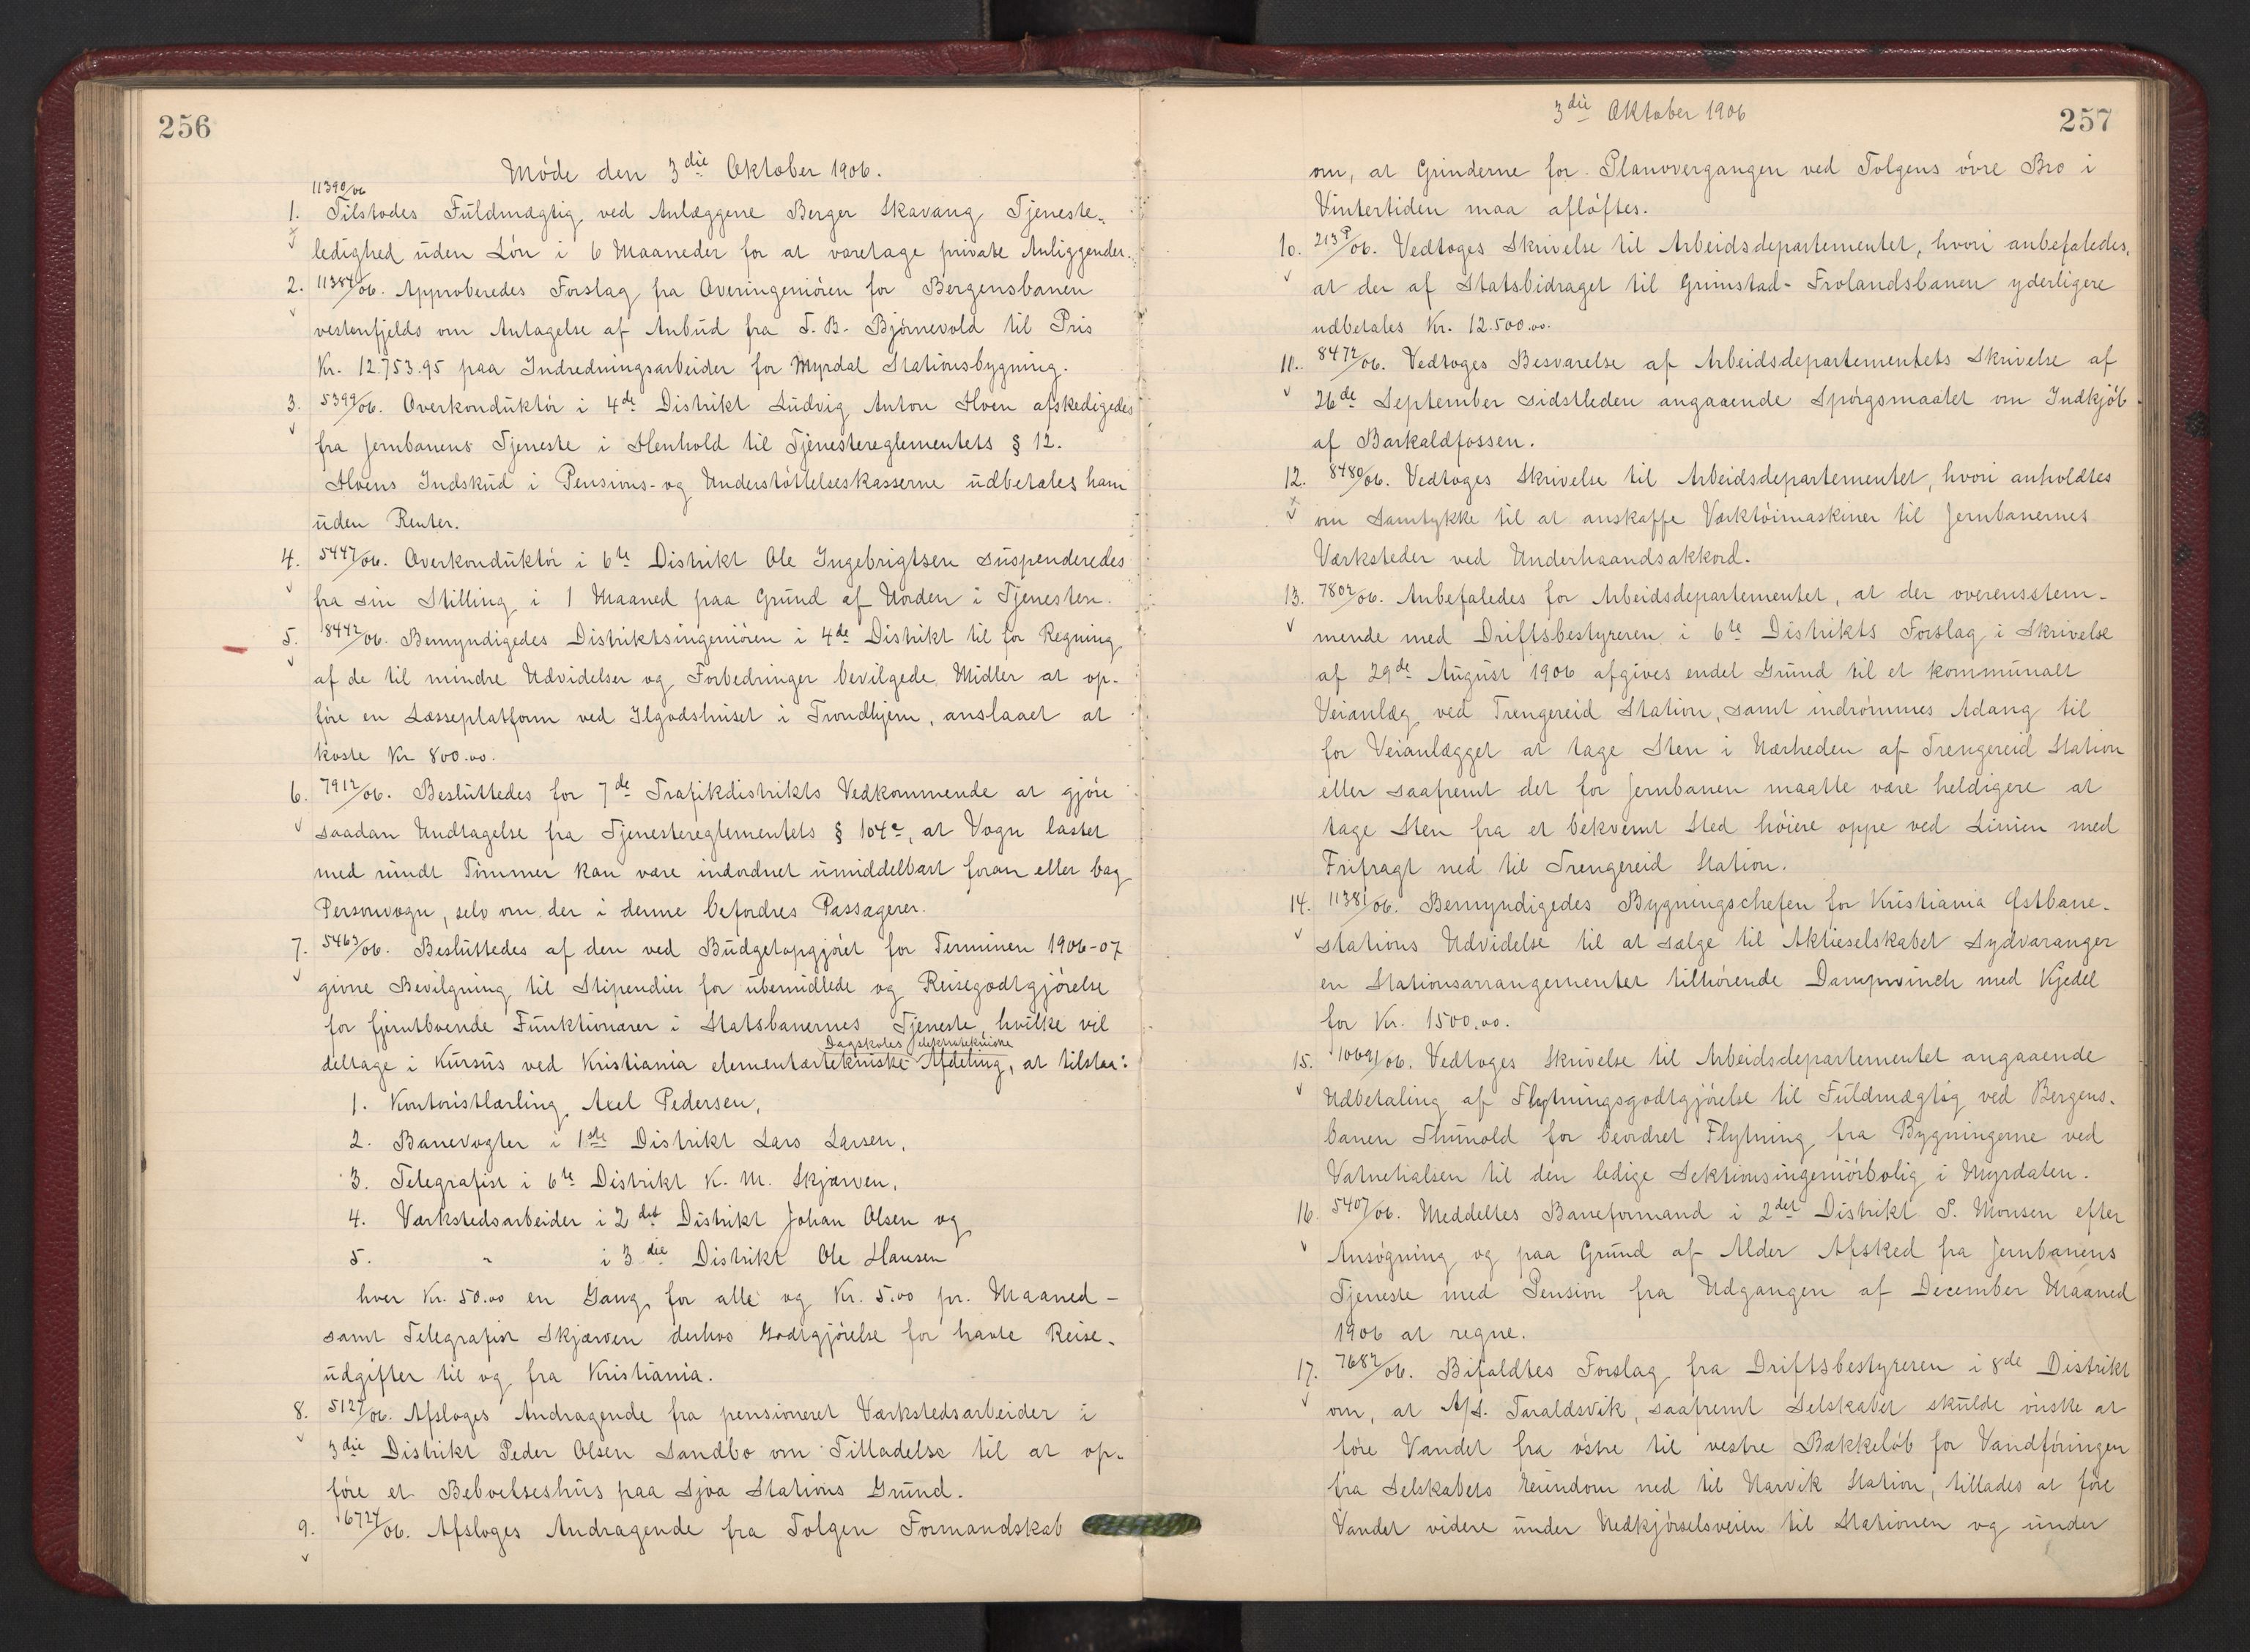 256
Møde den 3die Oktober 1906.
11390/06
1. Tilstodes Fuldmægtig ved Anlæggene Berger Skavang Tjeneste-
ledighed uden Løn i 6 Maaneder for at varetage private Anliggender.
2. 11384/06. Approberedes Forslag fra Overingeniøren for Bergensbanen
vestenfjelds om Antagelse af Anbud fra T. B. Bjørnevold til Pris
Kr. 12.753.95 paa Indredningsarbeider for Myrdal Stationsbygning.
3. 5399/06. Overkonduktør i 4de Distrikt Ludvig Anton Hven afskedigedes
fra Jernbanens Tjeneste i Henhold til Tjenestereglementets § 12.
Hvens Indskud i Pensions- og Understøttelseskasserne udbetales ham
uden Renter.
4. 5447/06. Overkonduktør i 6te Distrikt Ole Ingebrigtsen suspenderedes
fra sin Stilling i 1 Maaned paa Grund af Uorden i Tjenesten.
5. 8442/06. Bemyndigedes Distriktsingeniøren i 4de Distrikt til for Regning
af de til mindre Udvidelser og Forbedringer bevilgede Midler at op-
føre en Læsseplatform ved Ilgodshuset i Trondhjem, anslaaet at
koste Kr 800.00.
6. 7912/06. Besluttedes for 7de Trafikdistrikts Vedkommende at gjøre
saadan Undtagelse fra Tjenestereglementets § 104c, at Vogn lastet
med rundt Tømmer kan være indordnet umiddelbart foran eller bag
Personvogn, selv om der i denne befordres Passagerer.
7. 5463/06. Besluttedes af den ved Budgetopgjøret for Terminen 1906-07
givne Bevilgning til Stipendier for ubemidlede og Reisegodtgjørelse
for fjerntboende Funktionærer i Statsbanernes Tjeneste, hvilke vil
Dagskoles elektrotekniske
deltage i Kursus ved Kristiania elementærtekniske Afdeling, at tilstaa:
1. Kontoristlærling Axel Pedersen,
2. Banevogter i 1ste Distrikt Lars Larsen,
3. Telegrafist i 6te Distrikt K. M. Skjærven,
4. Værkstedsarbeider i 2det Distrikt Johan Olsen og
5. " i 3die Distrikt Ole Hansen
hver Kr. 50.00 en Gang for alle og Kr. 5.00 pr. Maaned -
samt Telegrafist Skjærven derhos Godtgjørelse for havte Reise-
udgifter til og fra Kristiania.
8. 5127/06. Afsloges Andragende fra pensioneret Værkstedsarbeider i
3die Distrikt Peder Olsen Sandbo om Tilladelse til at op-
føre et Beboelseshus paa Sjoa Stations Grund.
9. 6724/06. Afsloges Andragende fra Tolgen Formandskab
3die Oktober 1906
257
om, at Grinderne for Planovergangen ved Tolgens øvre Bro i
Vintertiden maa afløftes.
10. 213P/06. Vedtoges Skrivelse til Arbeidsdepartementet, hvori anbefaledes,
at der af Statsbidraget til Grimstad-Frolandsbanen yderligere
udbetales Kr. 12.500.00.
11. 8472/06. Vedtoges Besvarelse af Arbeidsdepartementets Skrivelse af
26de September sidstleden angaaende Spørgsmaalet om Indkjøb
af Barkaldfossen.
12. 8480/06. Vedtoges Skrivelse til Arbeidsdepartementet, hvori anholdtes
om Samtykke til at anskaffe Værktøimaskiner til Jernbanernes
Værksteder ved Underhaandsakkord.
13. 7802/06. Anbefaledes for Arbeidsdepartementet, at der overensstem-
mende med Driftsbestyreren i 6te Distrikts Forslag i Skrivelse
af 29de August 1906 afgives endel Grund til et kommunalt
Veianlæg ved Trengereid Station, samt indrømmes Adang til
for Veianlægget at tage Sten i Nærheden af Trengereid Station
eller saafremt det for Jernbanen maatte være heldigere at
tage Sten fra et bekvemt Sted høiere oppe ved Linien med
Frifragt ned til Trengereid Station.
14. 11381/06. Bemyndigedes Bygningschefen for Kristiania Østbane-
stations Udvidelse til at sælge til Aktieselskabet Sydvaranger
en Stationsarrangementet tilhørende Dampvinch med Kjedel
for Kr. 1500.00.
15. 10691/06. Vedtoges Skrivelse til Arbeidsdepartementet angaaende
Udbetaling af Flytningsgodtgjørelse til Fuldmægtig ved Bergens-
banen Thunold for beordret Flytning fra Bygningerne ved
Vatnehalsen til den ledige Sektionsingeniørbolig i Myrdalen.
16. 5407/06. Meddeltes Baneformand i 2det Distrikt S. Monsen efter
Ansøgning og paa Grund af Alder Afsked fra Jernbanens
Tjeneste med Pension fra Udgangen af December Maaned
1906 at regne.
17. 7682/06. Bifaldtes Forslag fra Driftsbestyreren i 8de Distrikt
om, at A/S. Taraldsvik, saafremt Selskabet skulde ønske at
føre Vandet fra østre til vestre Bækkeløb for Vandføringen
fra Selskabets Eiendom ned til Narvik Station, tillades at føre
Vandet videre under Nedkjørselsveien til Stationen og under